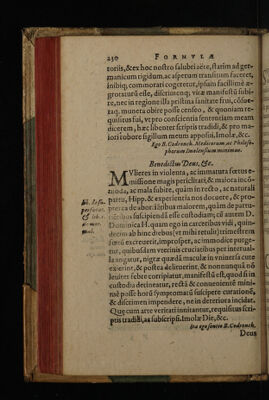 230 FORMVLAE
toriis, & ex hoc nostro salubri aëre, statim ad ger-
manicum rigidum, ac asperum transitum faceret,
inibiq; commorati cogeretur, ipsam facillimè æ-
grotaturũ esse, discrimenq; vitæ manifestũ subi-
re, nec in regione illa pristina sanitate frui, cõsue-
taq. munera obire posse censeo, & quoniam re-
quisitus fui, vt pro conscientia sententiam meam
dicerem, hæc libenter scriptis tradidi, & pro ma-
iori robore sigillum meum apposui, Imolæ, &c.
Ego B. Codronch. Medicorum ac Philoso-
phorum Imolensium minimus.
Benedictus Deus, &c.
MVlieres in violenta, ac immatura fœtus e-
missione magis periclitari, & maiora incõ-
moda, ac mala subire, quàm in recto, ac naturali
partu, Hipp. & experientia nos docuere, & pro-
pterea de abor-
D. Dominica H. quam ego in carceribus vidi, quin-
decim ab hinc diebus (vt mihi retulit) trimestrem
fœtũ excreuerit, improper, ac immodicè purge-
tur, quibusdam ventris cruciatibus per interual-
la angatur, nigræ quædã maculæ in vniuersa cute
exierint, & postea delituerint, & nonnunquã nõ
leuiter febre corripiatur, manifestũ est, quòd si in
custodia detineatur, rectã & conuenientẽ mini-
mè posse horũ symptomatũ suscipere curationẽ,
& discrimen impendere, ne in deteriora incidat.
Que cum arte veritati innitantur, requisitus scri-
ptis tradidi, ac subscripsi. Imolæ Die, &c.
Ita ego sentio B. Codronch.
Deus